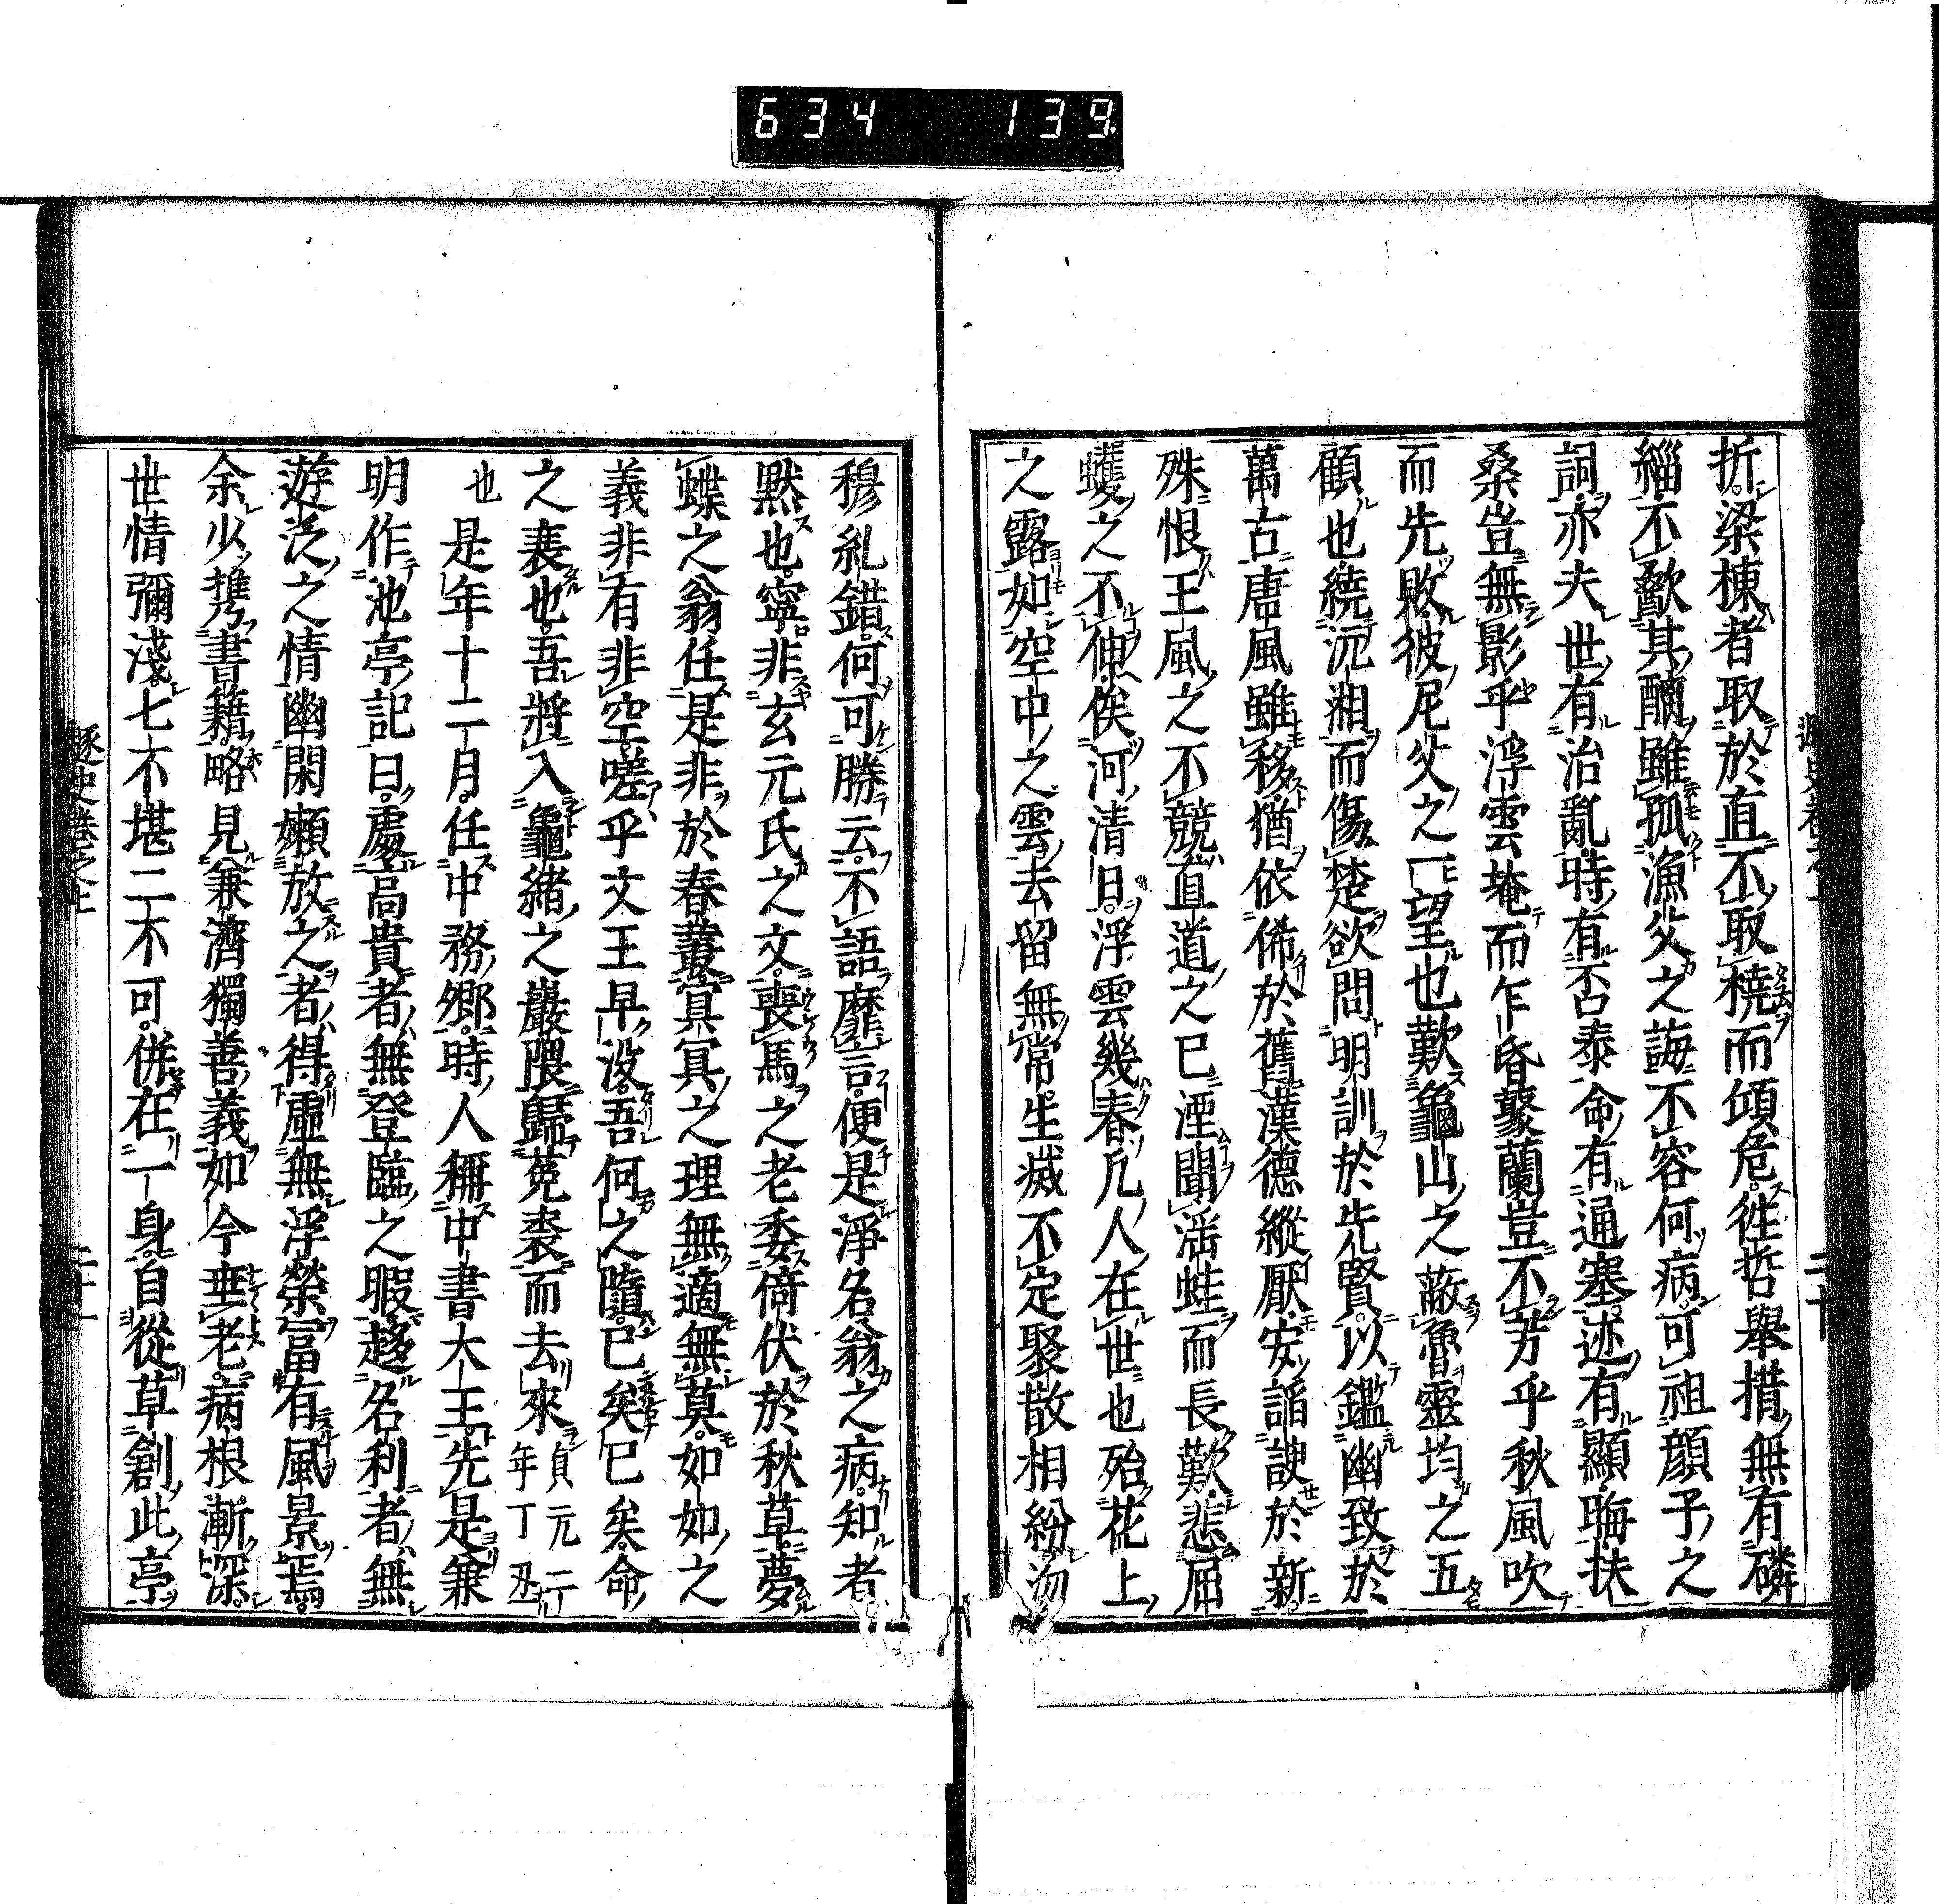 634 139
折梁棟者取於直不取橈而傾危徃哲舉措無有磷
緇不歠其醨雖孤漁父之誨不容何病可祖顔子之
詞亦夫世有治亂時有否泰命有通塞述有顯晦扶
桑豈無影乎浮雲掩而乍昏藂蘭豈不芳乎秋風吹
而先敗彼尼父之一望也歎龜山之蔽魯靈均之五
顧也繞沉湘而傷楚欲問明訓於先賢以鑑幽致於
萬古唐風雖移猶依俙於舊漢德縱厭安諂諛於新
殊恨王風之不競直道之已湮聞淫蛙而長歎悲屈
蠖之不伸俟河清日浮雲幾春凡人在世也殆花上
之露如空中之雲去留無常生滅不定聚散相紛沕
穆糺錯何可勝云不語靡言便是淨名翁之病知者
黙也寧非玄元氏之文喪馬之老委倚伏於秋草夢
蝶之翁任是非於春叢冥冥之理無適無莫如如之
義非有非空嗟乎文王早没吾何之隨已矣已矣命
之衰也吾將入龜緒之巖隈歸菟裘而去來貞元二
年丁丑
也是年十二月任中務卿時人稱中書大王先是兼
明作池亭記曰處高貴者無登臨之暇趍名利者無
遊泛之情幽閑嬾放之者得虛無浮榮富有風景焉
余少携書籍略見兼濟獨善義如今垂老病根漸深
世情彌淺七不堪二不可併在一身自從草創此亭